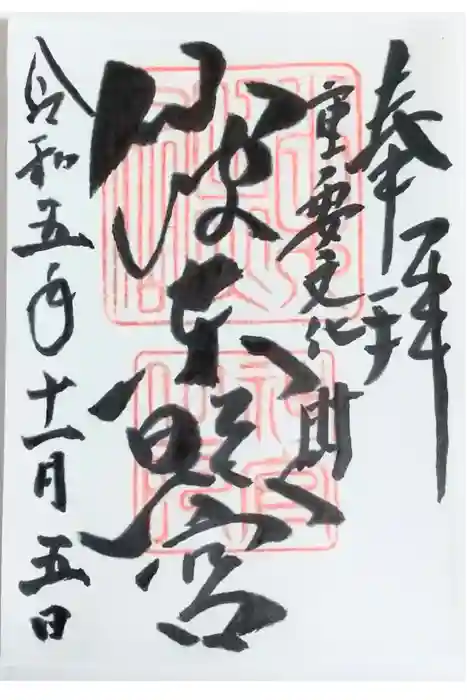 奉拝
重要文化財
仙波東照宮
令和五年十一月五日